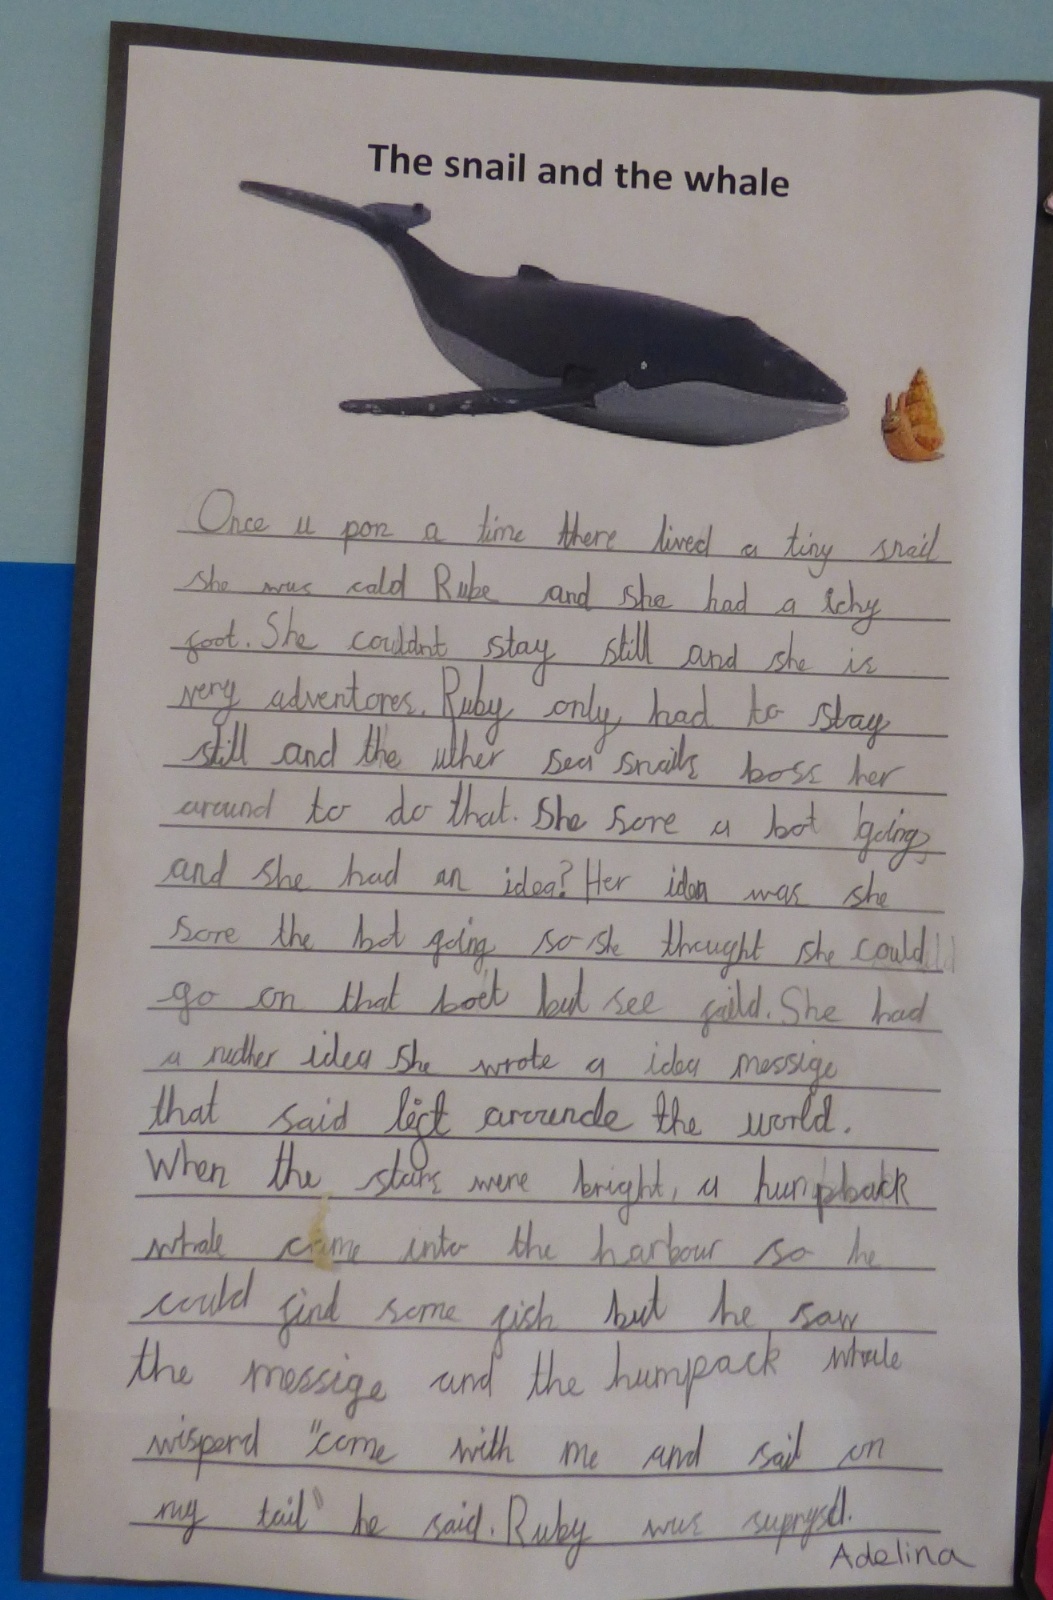 The snail and the whale
Once u pon a time there lived a tiny snail
she was cald Rube and she had a ichy
foot. She couldnt stay still and she is
very adventores. Ruby only had to stay
still and the uther sea snails boss her
around to do that. She sore a bot going
and she had an idea? Her idea was she
sore the bot going so she thought she could
go on that boet but see faild. She had
a nudher idea she wrote a idea messige
that said lift arounde the world.
When the stars were bright, a humpback
whale came into the harbour so he
could find some fish but he saw
the messige and the humpack whale
wisperd "come with me and sail on
my tail" he said. Ruby was suprysd.
Adelina